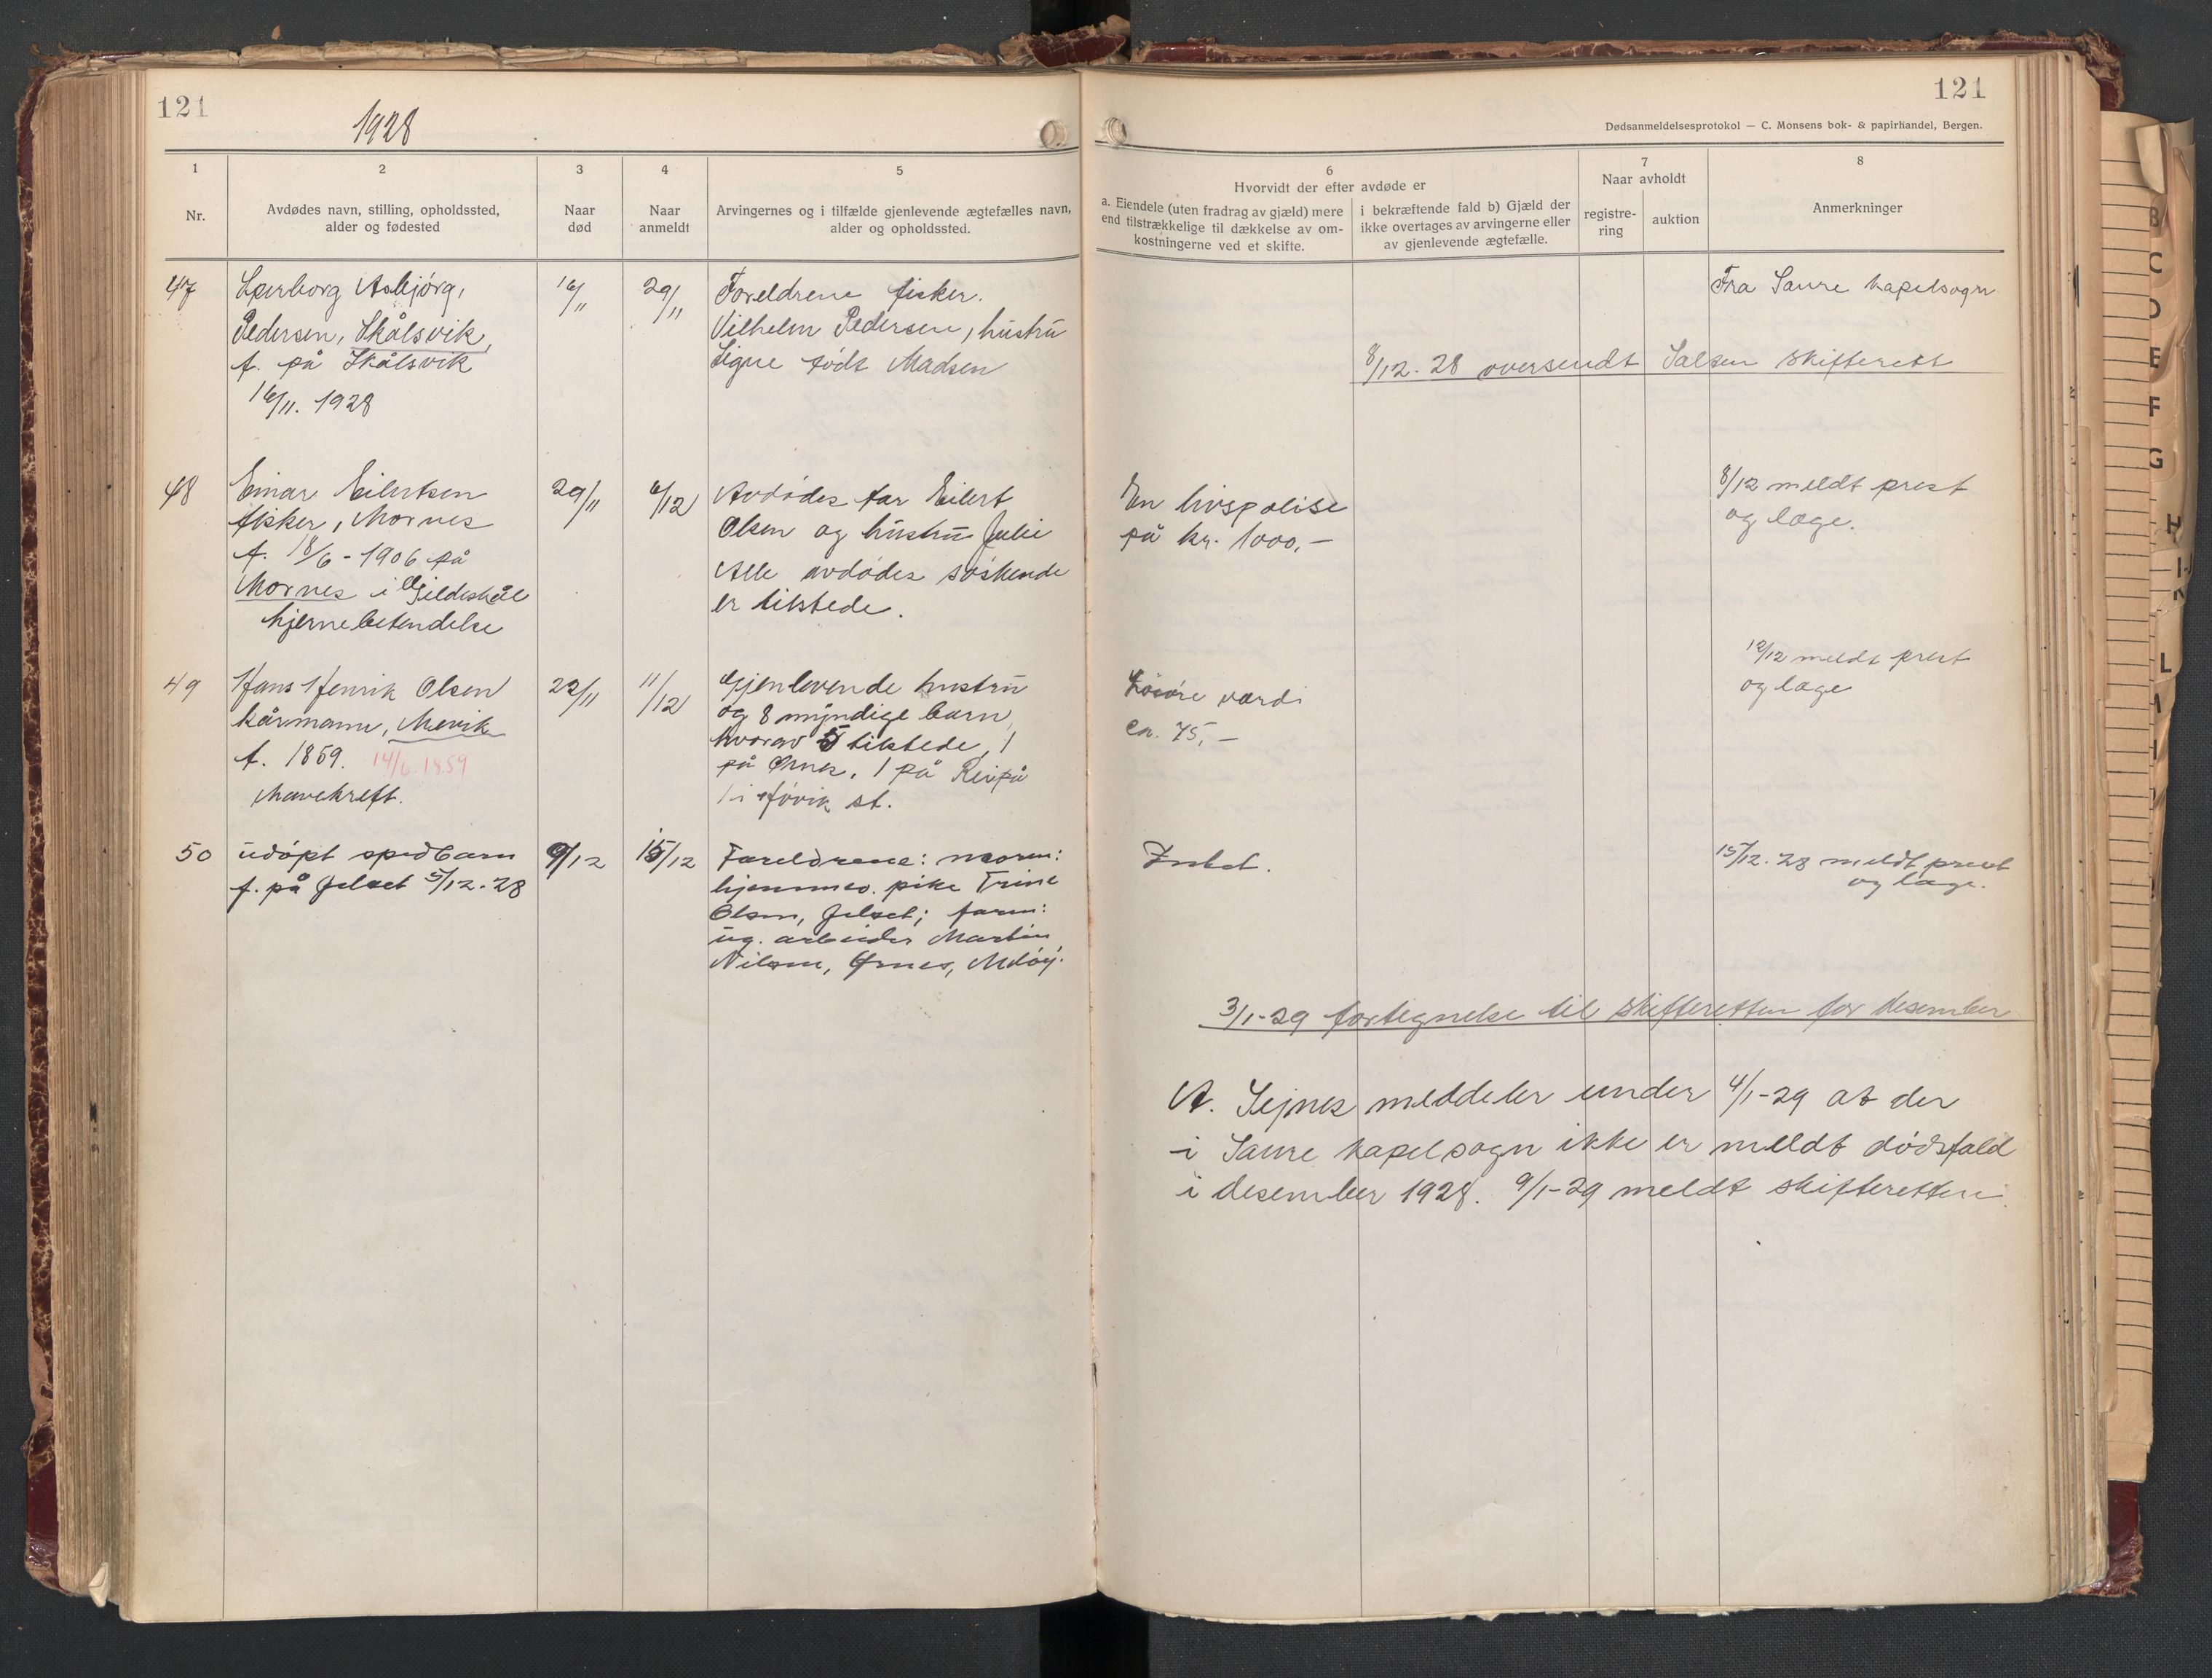 121
1928
121
Dødsanmeldelsesprotokol — C. Monsens bok- & papirhandel, Bergen.
1
2
3
4
5
Nr.
Avdødes navn, stilling, opholdssted,
alder og fødested
Naar
død
Naar
anmeldt
Arvingernes og i tilfælde gjenlevende ægtefælles navn,
alder og opholdssted.
6
Hvorvidt der efter avdøde er
a. Eiendele (uten fradrag av gjæld) mere
end tilstrækkelige til dækkelse av om-
kostningerne ved et skifte.
i bekræftende fald b) Gjæld der
ikke overtages av arvingerne eller
av gjenlevende ægtefælle.
7
Naar avholdt
registre-
ring
auktion
8
Anmerkninger
47
Asbjörg,
Pedersen, Skålsvik,
f. på Skålsvik
16/11. 1928
16/11
29/11
Foreldrene fisker.
Vilhelm Pedersen, hustru
Signe född Madsen
Fra Saure kapelsogn
8/12. 28 oversendt Salten skifterett
48
Einar Eilertsen
fisker, Mornes
f. 18/6 - 1906 på
Mornes i Gildeskål
hjernebetendelse
29/11
6/12
Avdödes far Eilert
Olsen og hustru Julie
Alle avdödes söskende
er tilstede.
En livspolise
på kr. 1000,-
8/12 meldt prest
og læge.
49
Hans Henrik Olsen
kårmann, Mevik
f. 1859. 14/6.1859
Mavekreft.
22/11
11/12
Gjenlevende hustru
og 8 myndige barn,
hvorav 5 tilstede, 1
på Ørnes, 1 på Reipå
1 i st.
Lösöre værdi
ca. 75,-
12/12 meldt prest
og læge
50
udöpt spedbarn
f. på Jelset 5/12-28
9/12
15/12
Foreldrene: moren:
hjemmev. pike Trine
Olsen, Jelset; faren:
ug. arbeider Martin
Nilsen, Ørnes, Melöy.
Intet.
15/12. 28 meldt prest
og læge.
3/1-29 fortegnelse til skifteretten for desember
A. Sejnes meddeler under 4/1-29 at der
i Saure kapelsogn ikke er meldt dödsfald
i desember 1928. 9/1-29 meldt skifteretten.
B
C
D
E
F
G
H
L